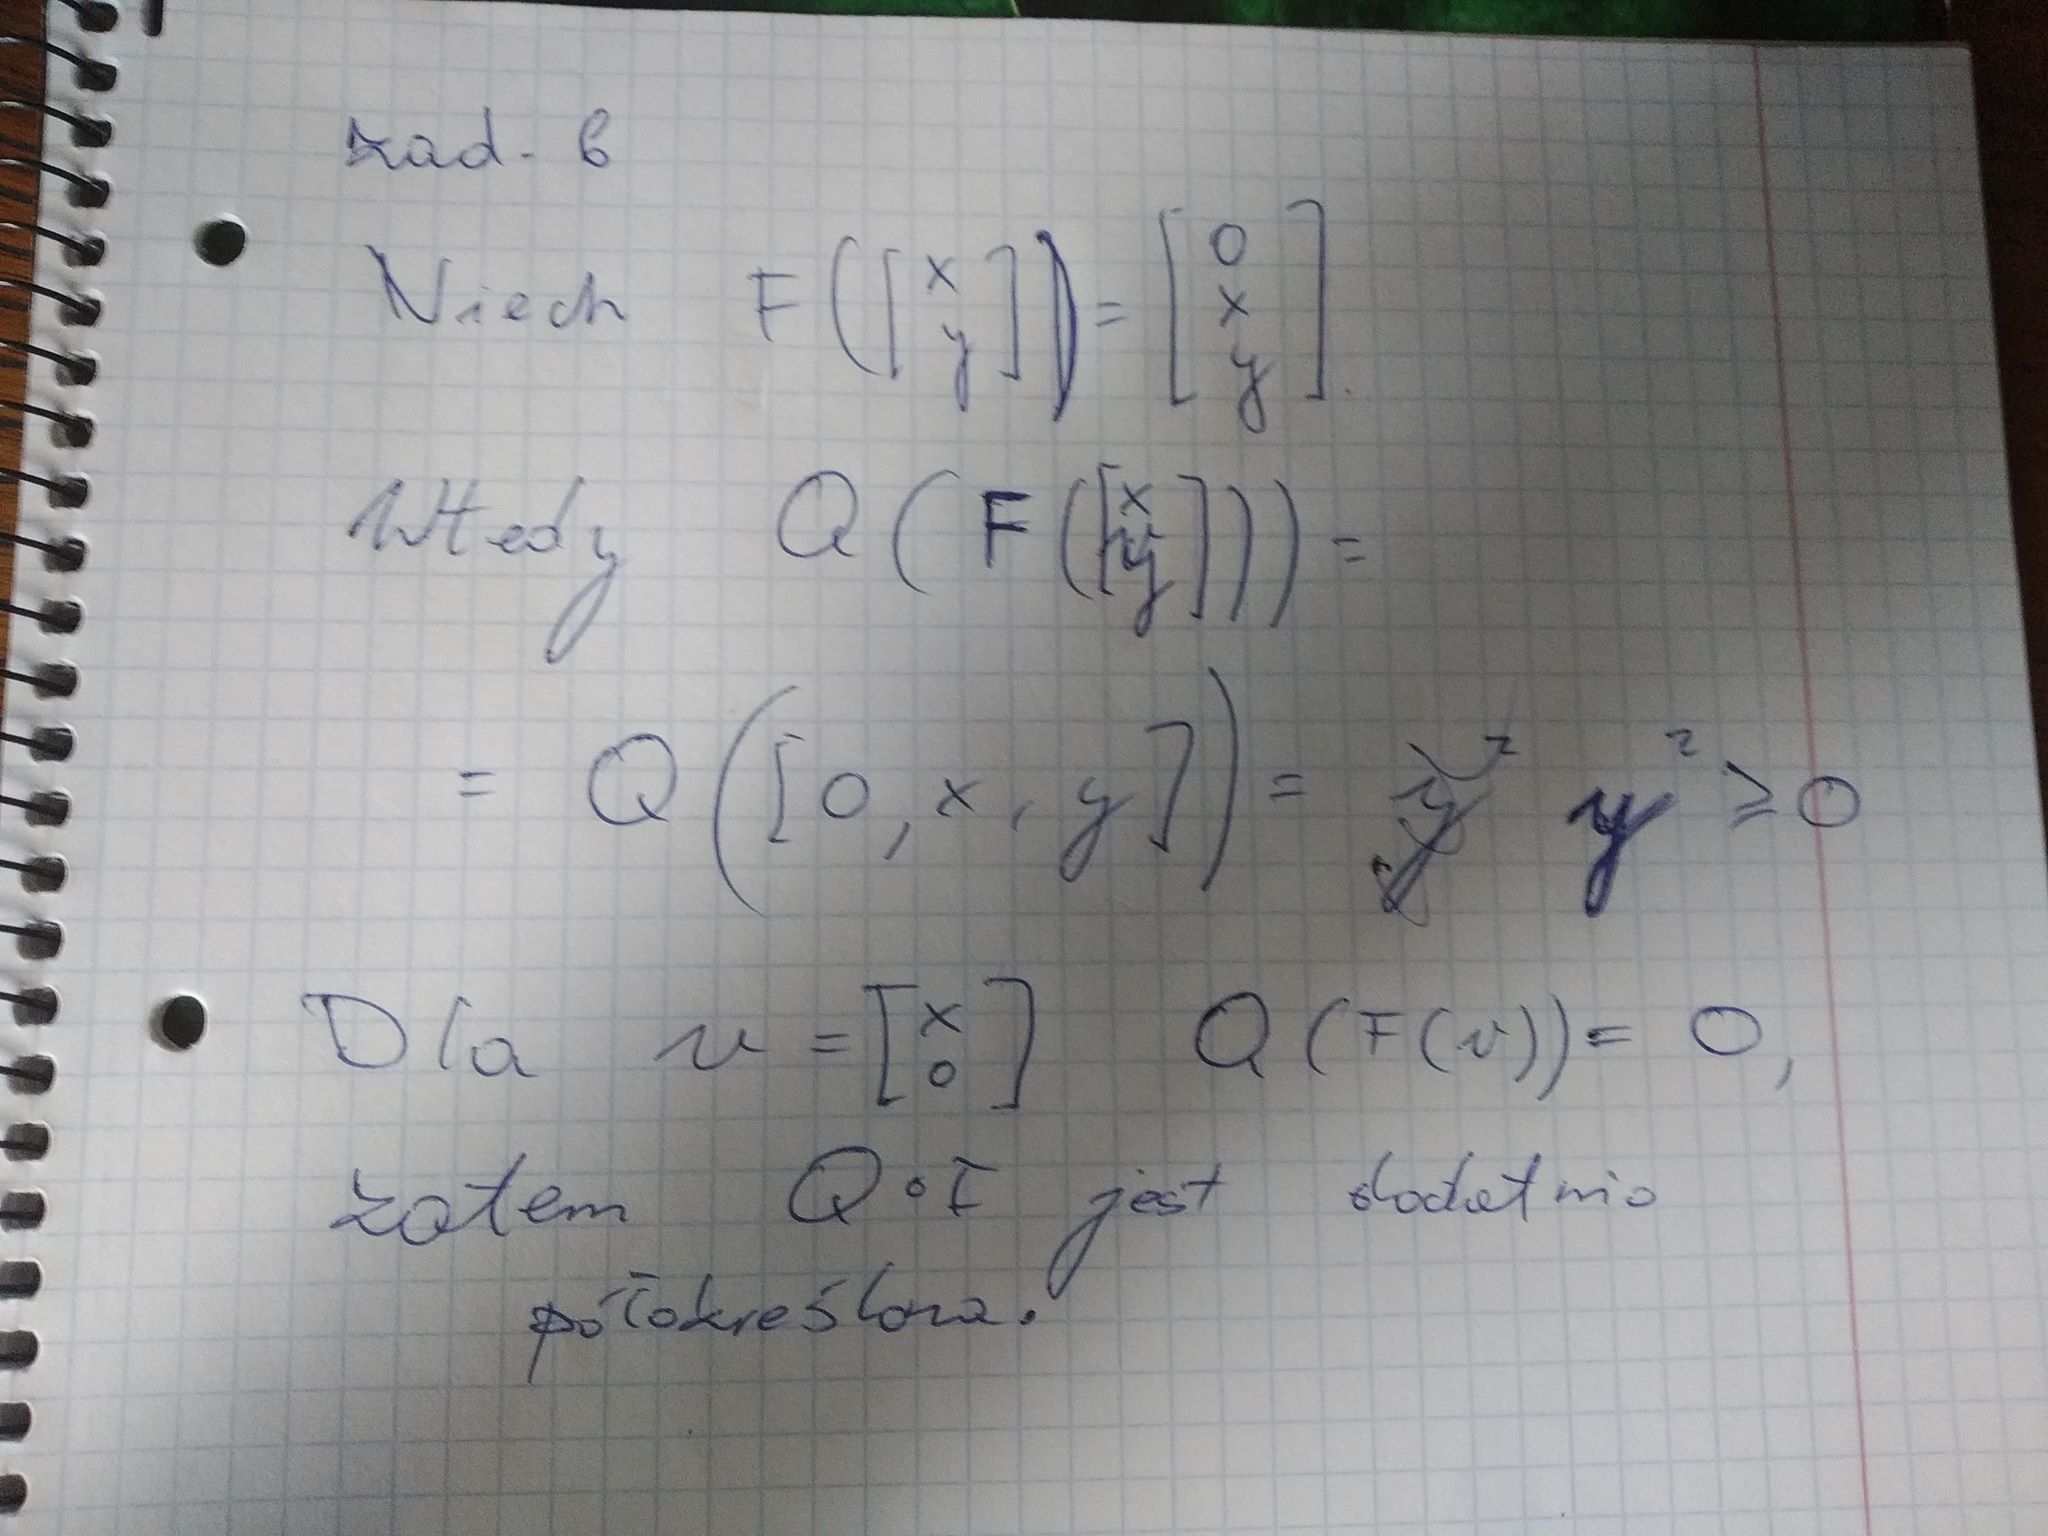 zad. 6
Niech F([x y]) = [0 x y].
Wtedy Q(F([x y])) =
= Q([0, x, y]) = y² ≥ 0
Dla v = [x 0] Q(F(v)) = 0,
zatem Q∘F jest dodatnio
półokreślona.